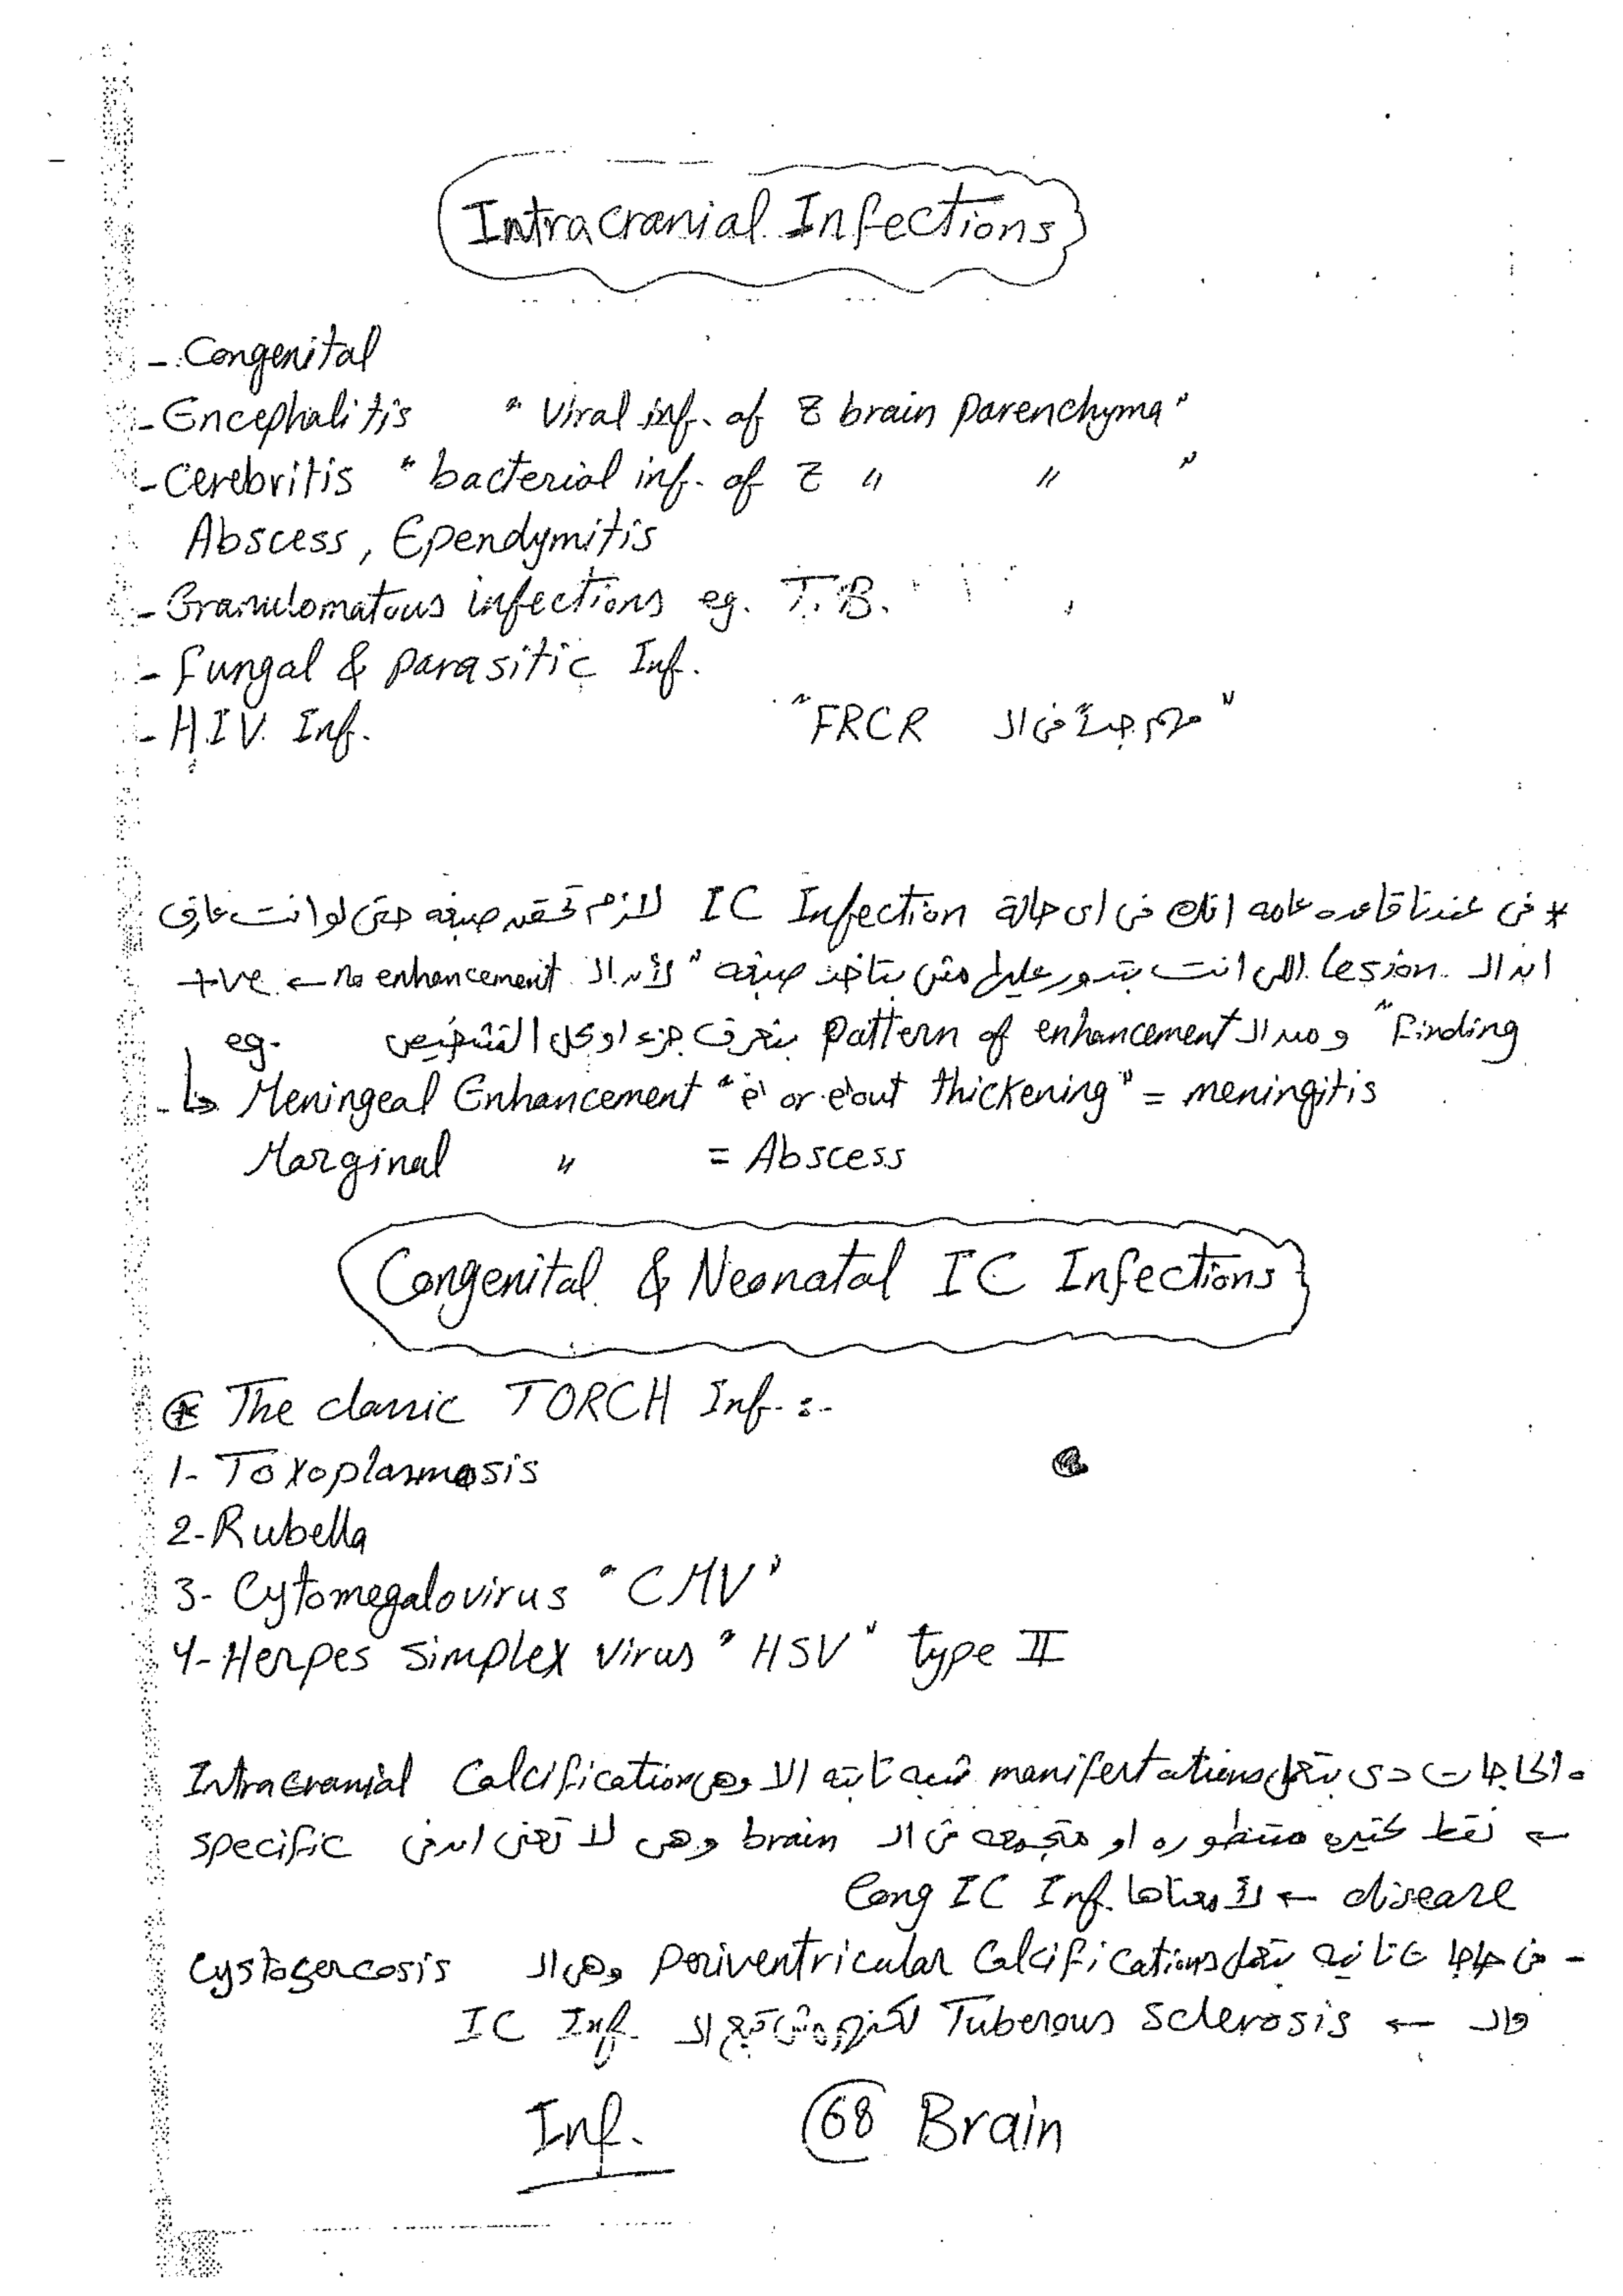 Intracranial Infections
- Congenital
- Encephalitis " Viral inf. of Z brain parenchyma "
- Cerebritis " bacterial inf. of Z " " "
Abscess, Ependymitis
- Granulomatous infections eg. T.B.
- Fungal & parasitic Inf.
- HIV Inf. " مهم جداً فى الـ FRCR "
* فى عندنا قاعده عامه انك فى اى حالة IC Infection لازم تحقن صبغه حتى لو انت عارف
ان الـ Lesion اللى انت بتدور عليها مش بتاخد صبغه " لأن الـ no enhancement ← +ve
Finding " ومن الـ pattern of enhancement بنعرف جزء او كل التشخيص eg.
↳ Meningeal Enhancement " è or èout thickening " = meningitis
Marginal " = Abscess
Congenital & Neonatal IC Infections
* The classic TORCH Inf. :-
1- Toxoplasmosis
2- Rubella
3- Cytomegalovirus " CMV "
4- Herpes Simplex virus " HSV " type II
الحاجات دى بتعمل manifestations شبه ثابته الا وهى Intracranial Calcification
← نقط كتيره منتطوره او متجمعه فى الـ brain وهى لا تعنى specific
disease ← Cong IC Inf.
- فى حاجات تانيه بتعمل periventricular Calcifications وهى الـ Cystosercosis
والـ ← Tuberous Sclerosis لكنها مش تبع الـ IC Inf.
Inf. 68 Brain